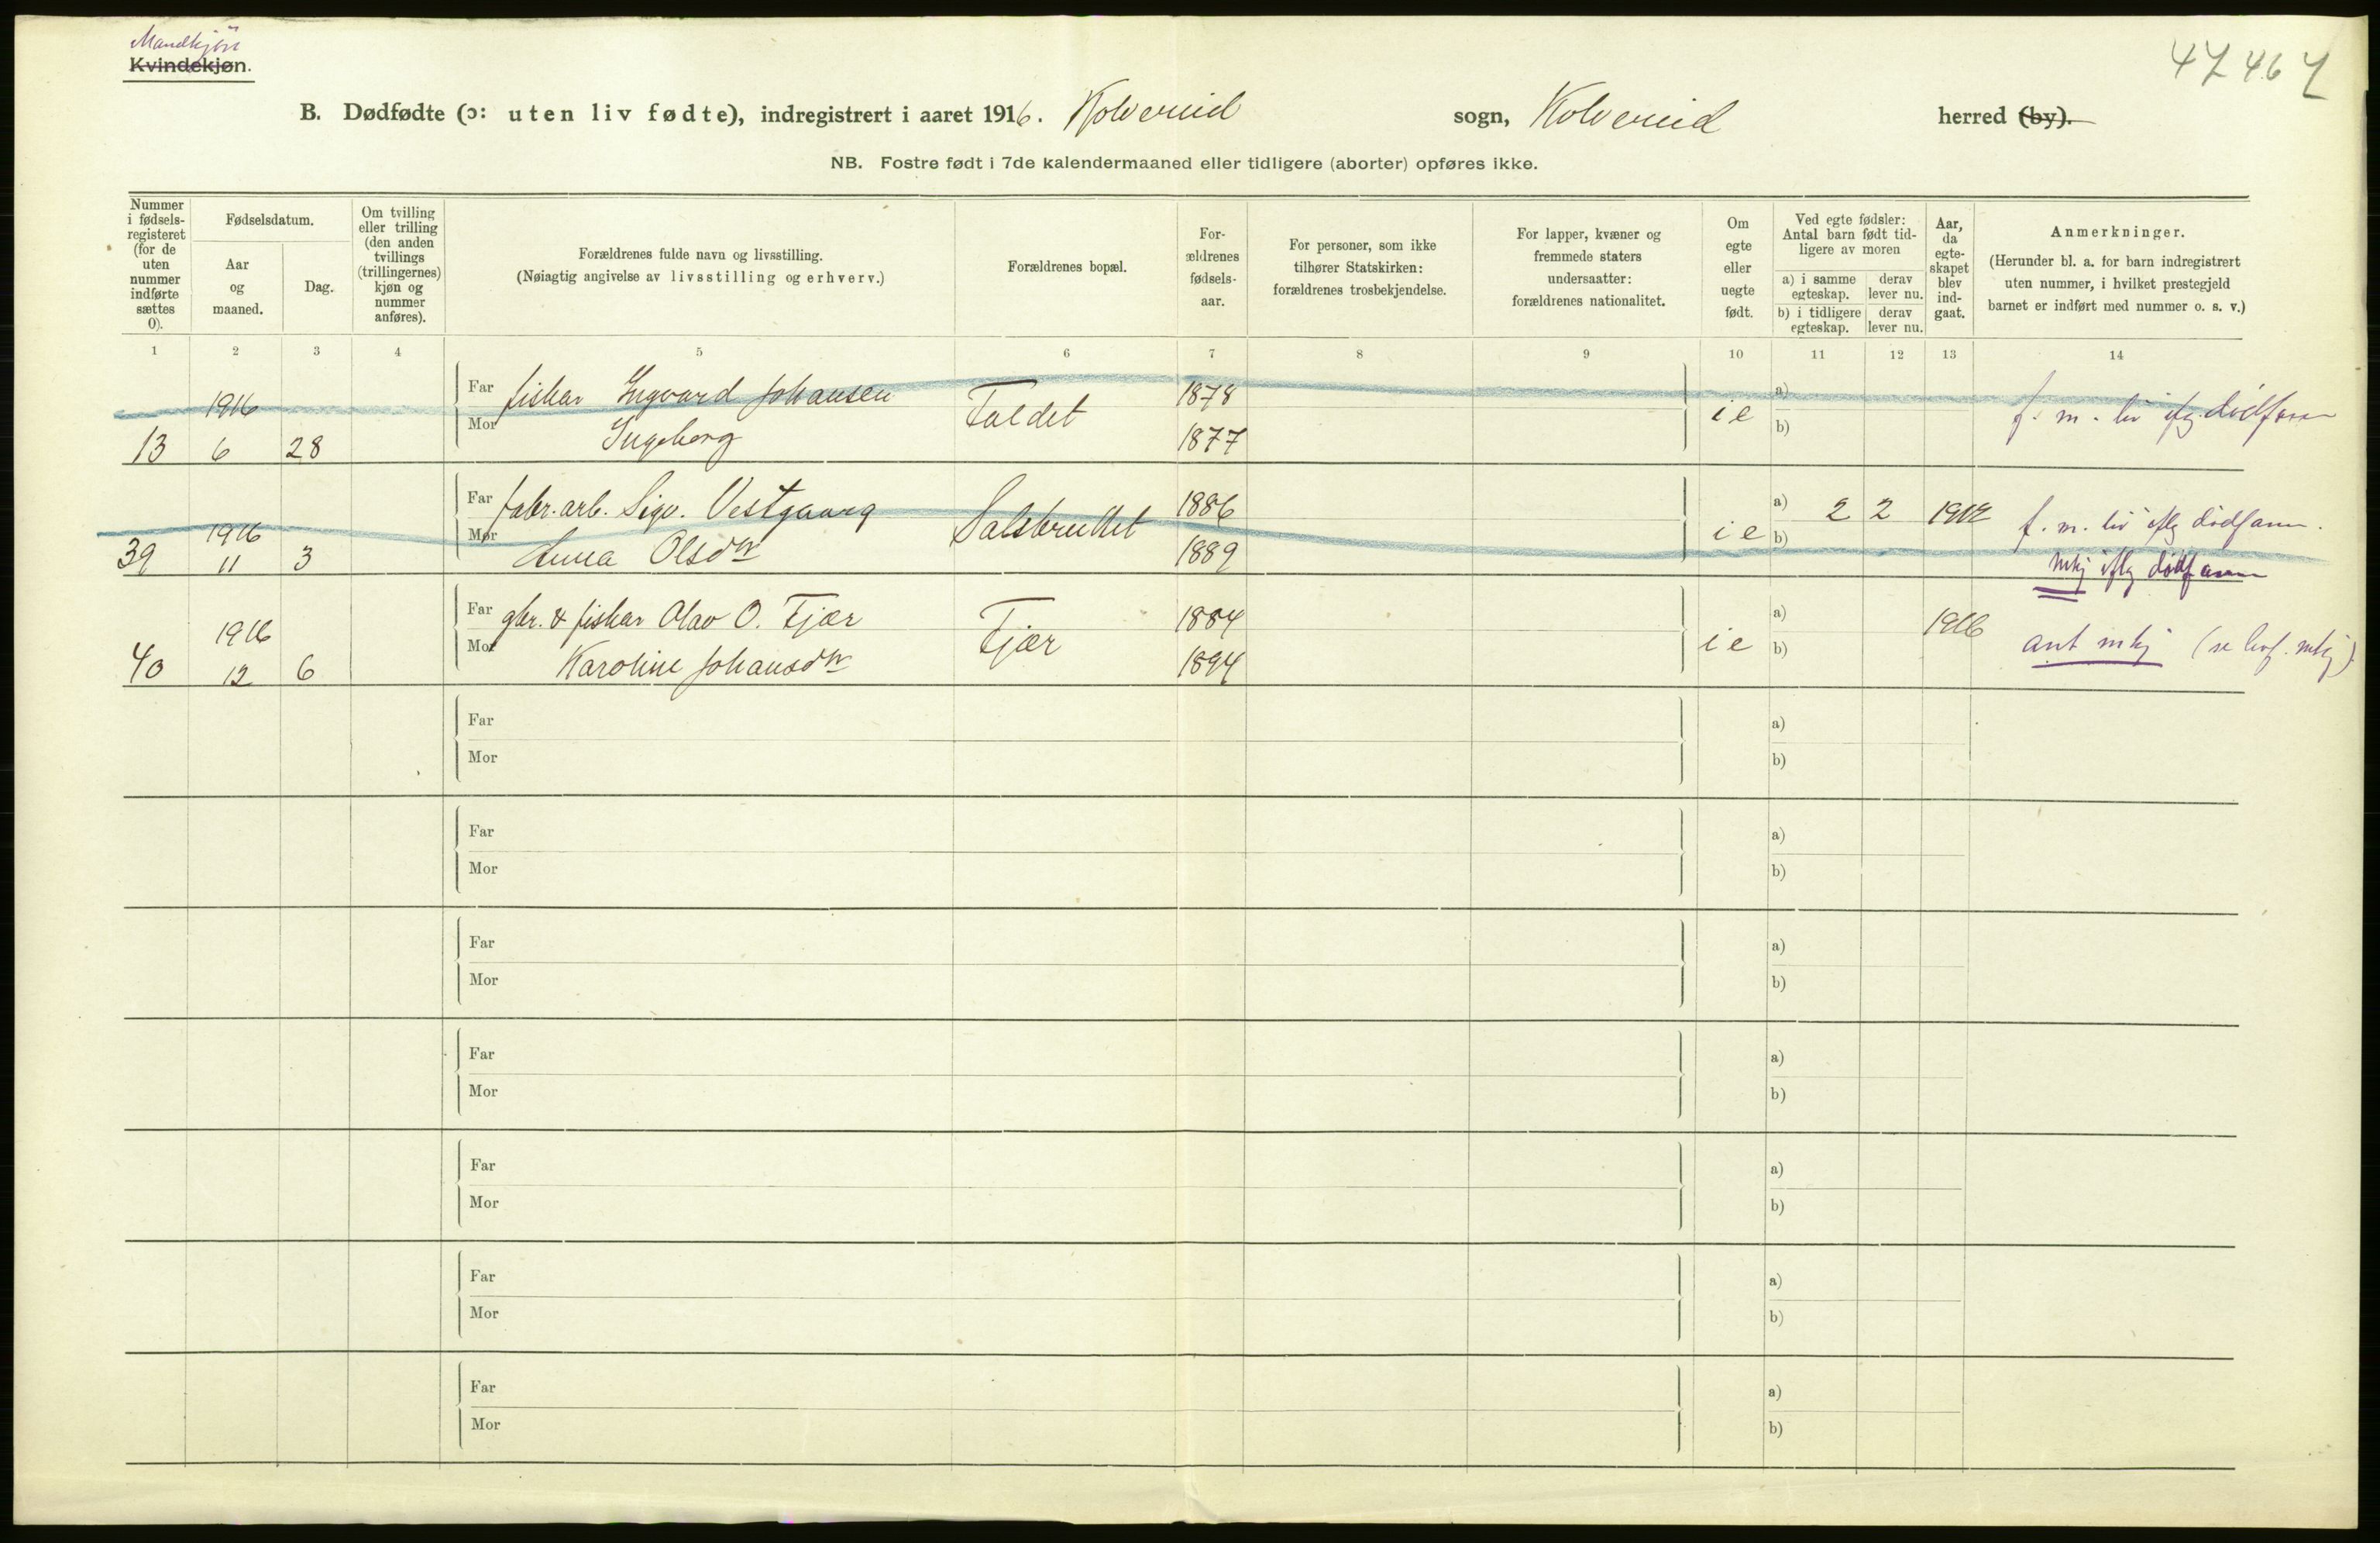 Mandkjön
Kvindekjøn.
47467
B. Dødfødte (ɔ: uten liv fødte), indregistrert i aaret 1916. Kolvereid sogn, Kolvereid herred (by).
NB. Fostre født i 7de kalendermaaned eller tidligere (aborter) opføres ikke.
Nummer
i fødsels-
registeret
(for de
uten
nummer
indførte
sættes
0).
Fødselsdatum.
Aar
og
maaned.
Dag.
Om tvilling
eller trilling
(den anden
tvillings
(trillingernes)
kjøn og
nummer
anføres).
Forældrenes fulde navn og livsstilling.
(Nøiagtig angivelse av livsstilling og erhverv.)
Forældrenes bopæl.
For-
ældrenes
fødsels-
aar.
For personer, som ikke
tilhører Statskirken:
forældrenes trosbekjendelse.
For lapper, kvæner og
fremmede staters
undersaatter:
forældrenes nationalitet.
Om
egte
eller
uegte
født.
Ved egte fødsler:
Antal barn født tid-
ligere av moren
a) i samme
egteskap.
derav
lever nu.
b) i tidligere
egteskap.
derav
lever nu.
Aar,
da
egte-
skapet
blev
ind-
gaat.
Anmerkninger.
(Herunder bl. a. for barn indregistrert
uten nummer, i hvilket prestegjeld
barnet er indført med nummer o. s. v.)
1 2 3 4 5 6 7 8 9 10 11 12 13 14
1916 Far fisker Ingvard Johansen Faldet 1878 a)
13 6 28 Mor Ingeborg 1877 i e b) f. m. liv iflg. dødfarm
Far fabr.arb. Sigv. Vestgaarg Salsbruket 1886 a) 2 2 1912 f. m. liv iflg dødfarm.
1916
39 11 3 Mor Anna Olsdtr 1889 i e b)
mkj iflg dødfarm
1916 Far gbr. & fisker Olav O. Fjær Fjær 1884 a) 1916
40 12 6 Mor Karoline Johansdtr 1894 i e b) ant mkj (se levf. mkj)
Far a)
Mor b)
Far a)
Mor b)
Far a)
Mor b)
Far a)
Mor b)
Far a)
Mor b)
Far a)
Mor b)
Far a)
Mor b)